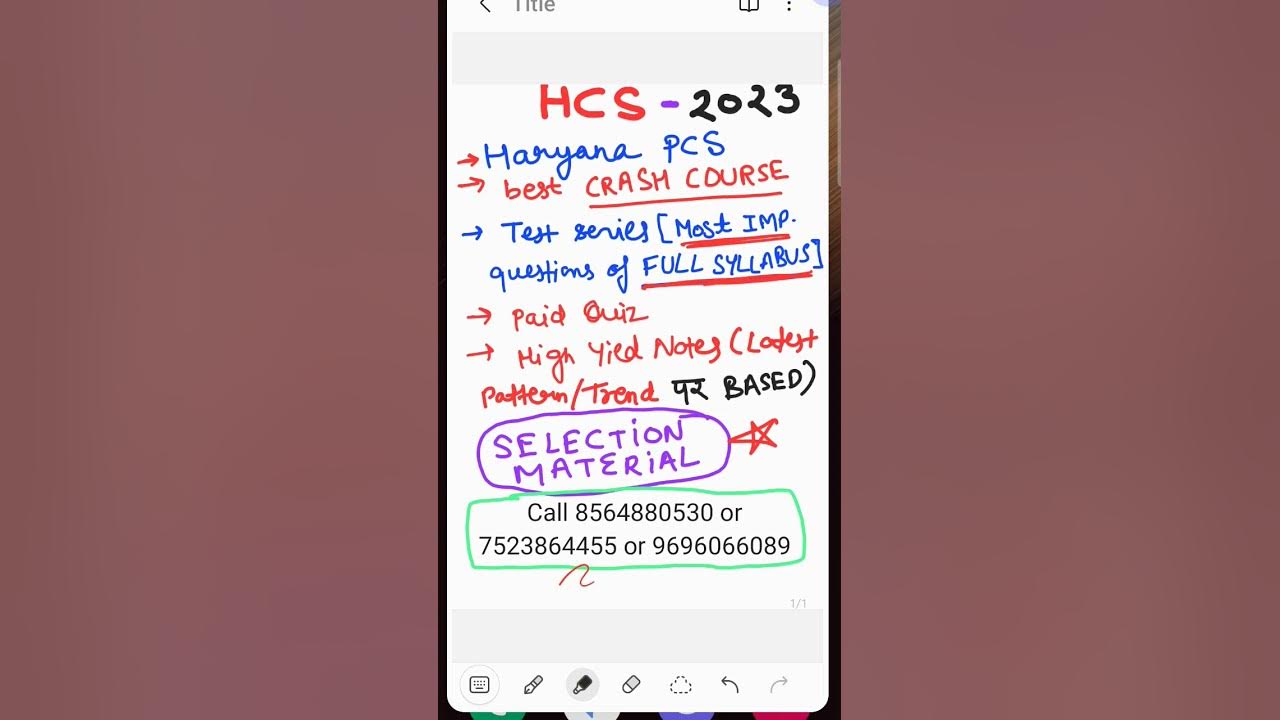 Title
HCS - 2023
→ Haryana PCS
→ best CRASH COURSE
→ Test series [Most IMP.
questions of FULL SYLLABUS]
→ Paid Quiz
→ High Yield Notes (Latest
Pattern/Trend पर BASED)
SELECTION
MATERIAL
Call 8564880530 or
7523864455 or 9696066089
1/1